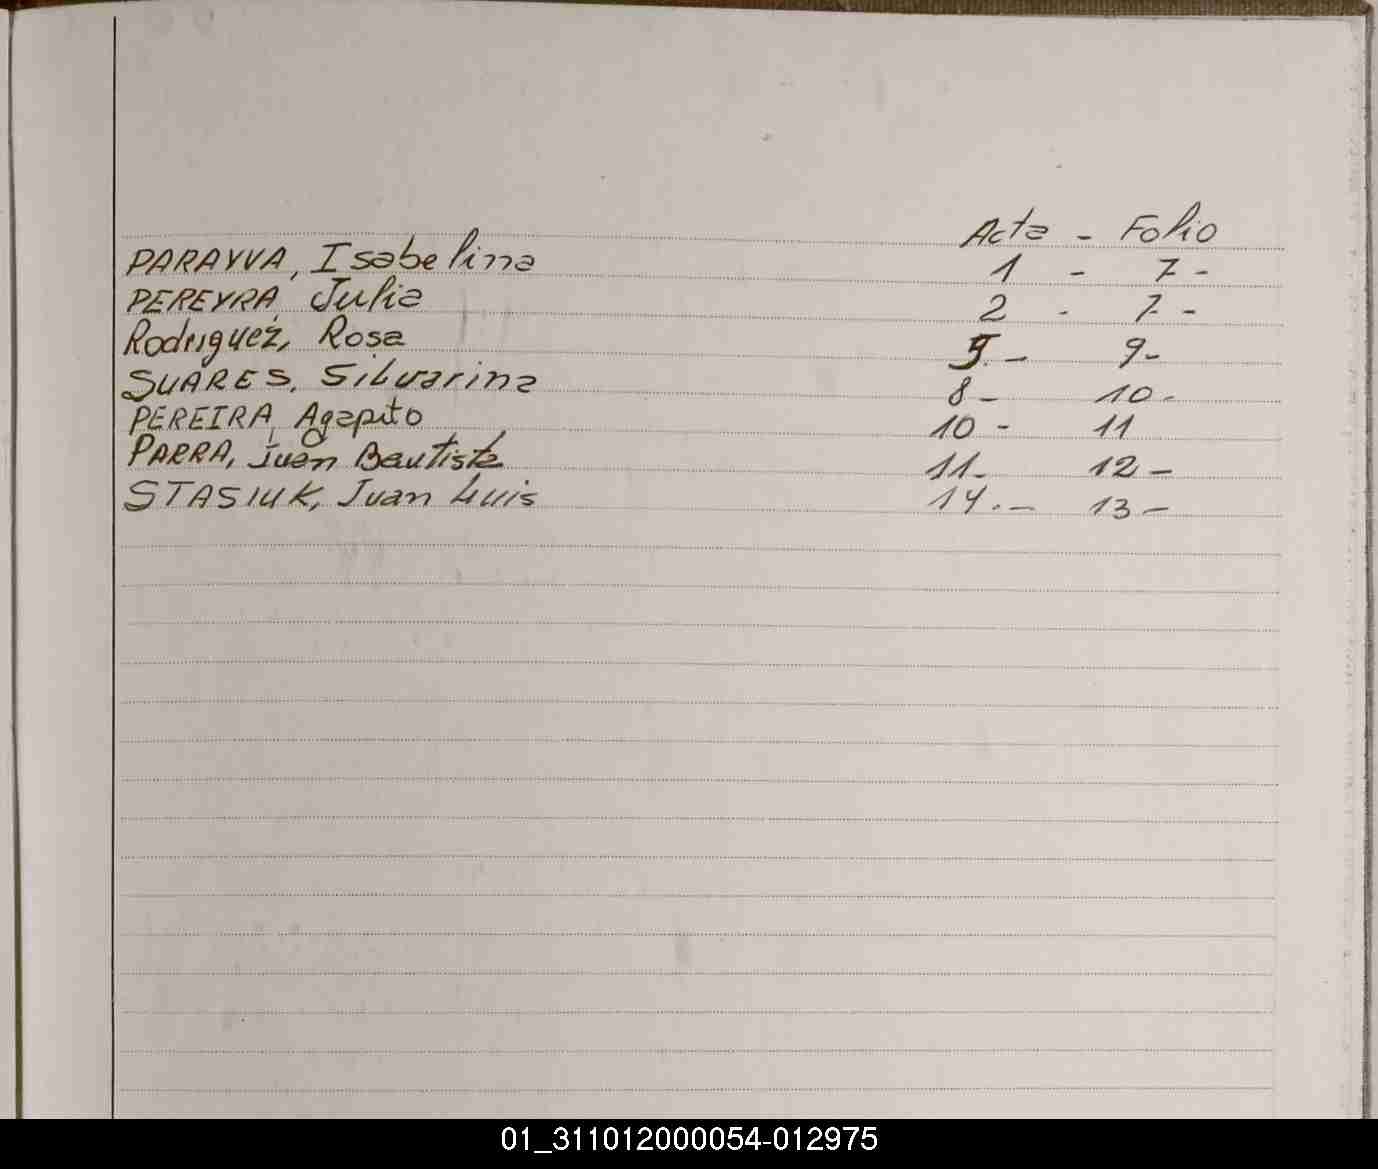 Acta - Folio
PARAYVA, Isabelina 1 - 7 -
PEREYRA, Julia 2 - 7 -
Rodriguez, Rosa 5.- 9-
SUARES, Silvarina 8- 10-
PEREIRA, Agapito 10 - 11
PARRA, Juan Bautista 11- 12-
STASIUK, Juan Luis 14.- 13-
01_311012000054-012975